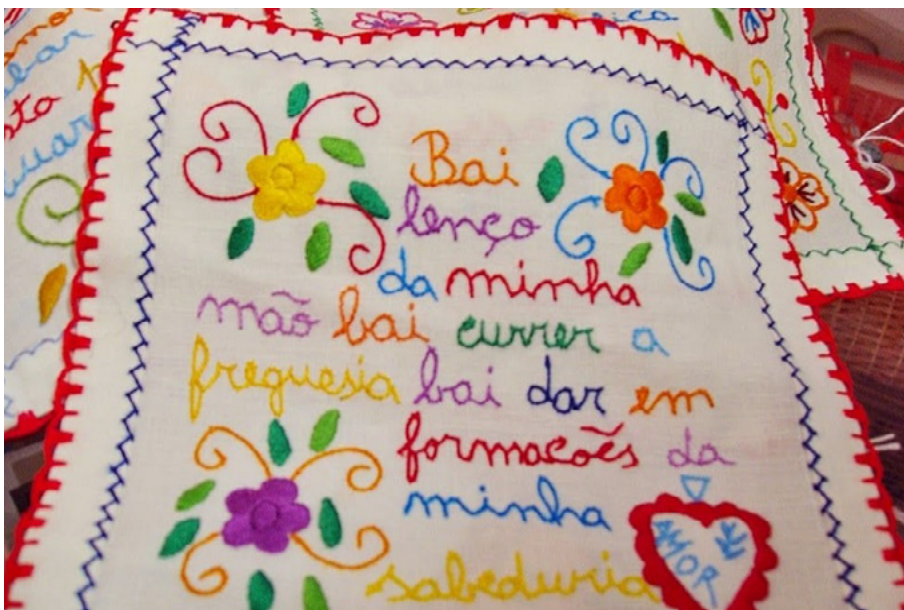 Bai
lenço
da minha
mão bai currer a
freguesia bai dar em
formacões da
minha
sabeduria
AMOR